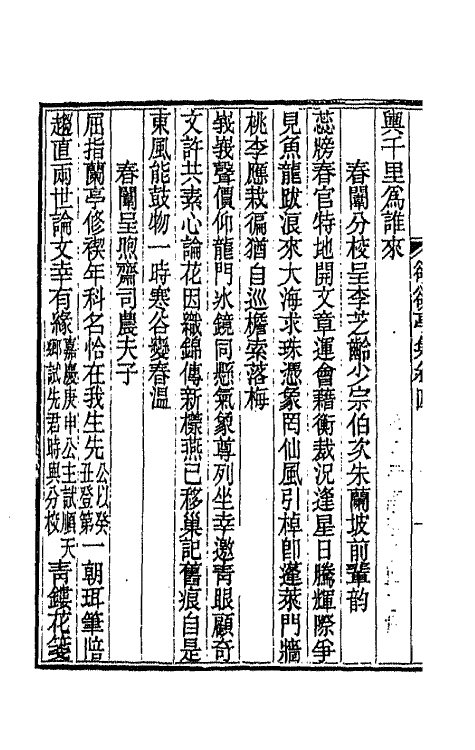 輿千里爲誰來
春闈分校呈李芝齡少宗伯次朱蘭坡前輩韻
蕊榜春官特地開文章運會藉衡裁況逢星日騰輝際爭
見魚龍跋浪來大海求珠憑象罔仙風引棹卽蓬萊門牆
桃李應栽徧猶自巡檐索落梅
峩峩聲價仰龍門氷鏡同懸氣象尊列坐幸邀靑眼顧奇
文許共素心論花因織錦傳新樣燕已移巢記舊痕自是
東風能鼓物一時寒谷變春溫
春闈呈煦齋司農夫子
屈指蘭亭修禊年科名恰在我生先公以癸丑登第一朝珥筆陪
趨直兩世論文幸有緣嘉慶庚申公主試順天鄉試先君時與分校靑鏤花箋